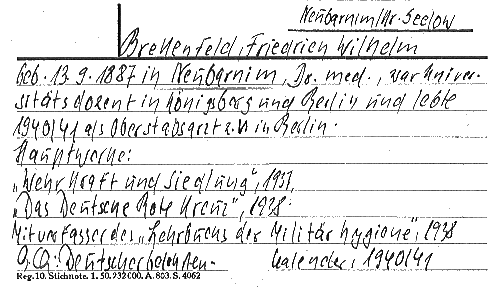 Neubarnim/Kr. Seelow
Brettenfeld, Friedrich Wilhelm
Geb. 13.9.1887 in Neubarnim, Dr. med., war Univer-
sitätsdozent in Königsberg und Berlin und lebte
1940/41 als Oberstabsarzt a.W in Berlin.
Hauptwerke:
„Wehrkraft und Siedlung", 1937,
„Das Deutsche Rote Kreuz", 1938.
Mitverfasser des „Lehrbuchs der Militärhygiene", 1938
Deutscher Gelehrten-Kalender, 1940/41
Reg. 10. Stichnote. 1. 50. 232 000. A. 803. S. 4062